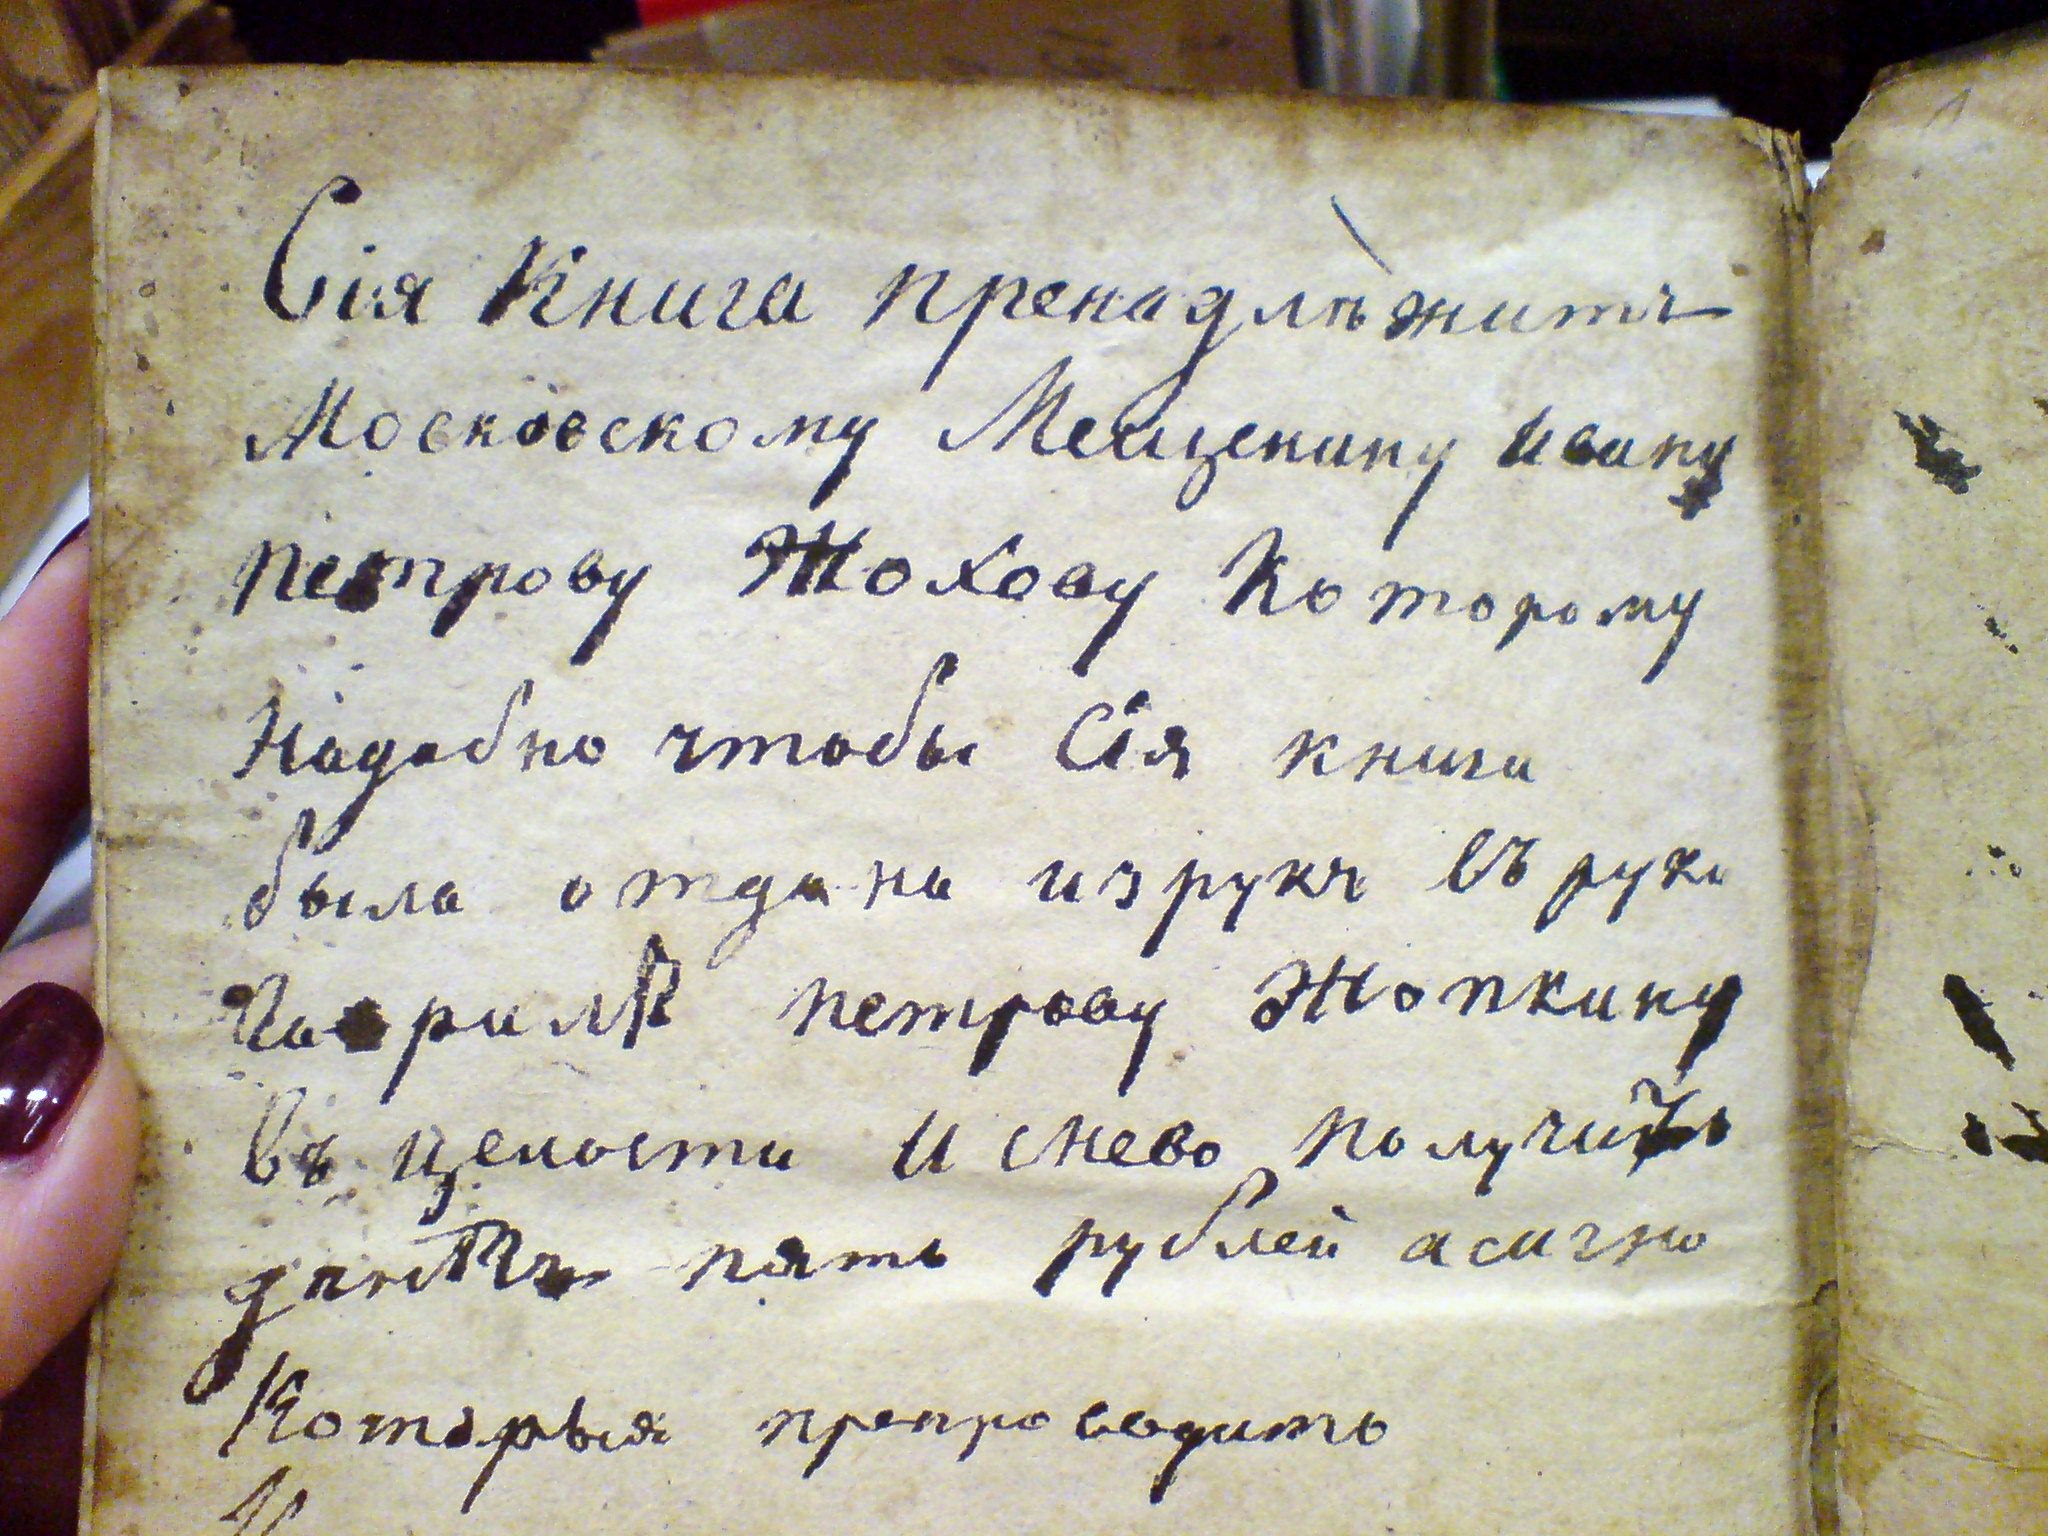 Сія Книга пренадлѣжитъ
Московскому Мещенину Ивану
петрову Жохову Которому
Надобно чтобы Сія книга
была отдана изрукъ въ руки
Гаврилѣ петрову Жопкину
въ целости И снево получить
пять рублей асигно
Которыя препроводить